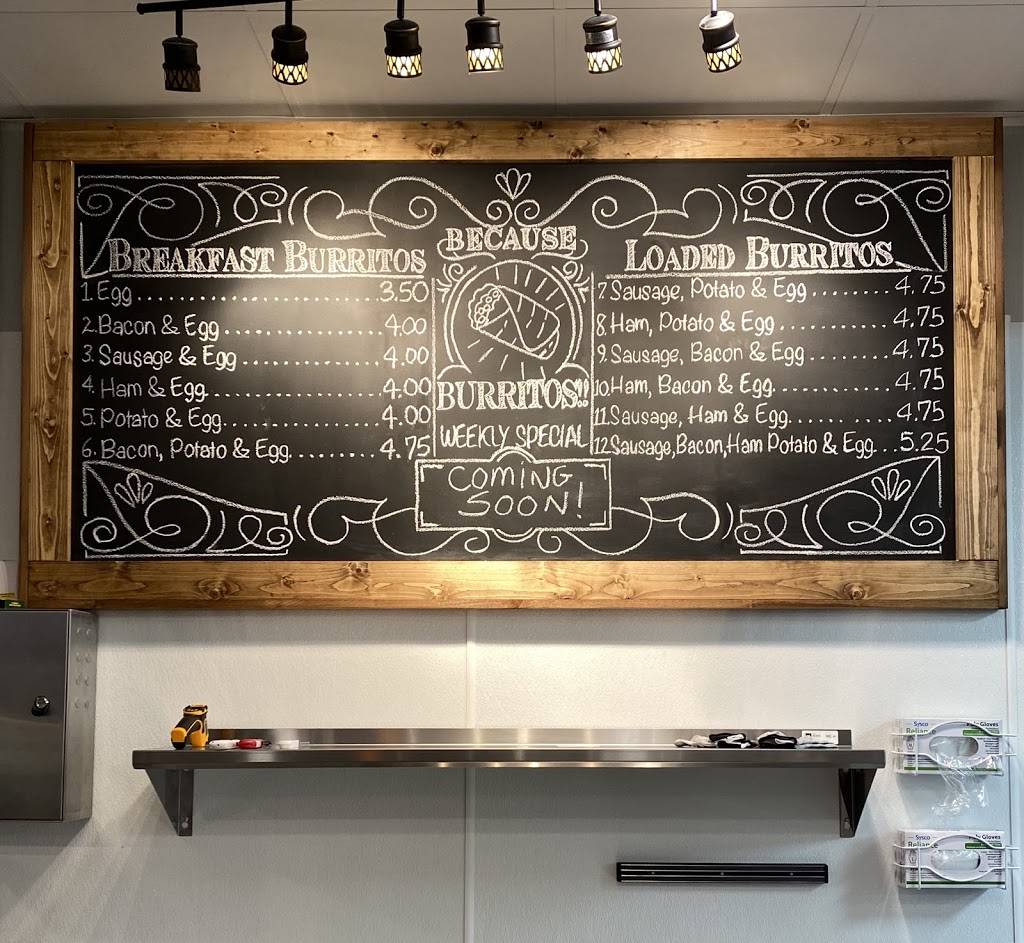 BREAKFAST BURRITOS
1. Egg..............................3.50
2. Bacon & Egg....................4.00
3. Sausage & Egg.................4.00
4. Ham & Egg.....................4.00
5. Potato & Egg...................4.00
6. Bacon, Potato & Egg..........4.75
BECAUSE
BURRITOS!!
WEEKLY SPECIAL
COMING
SOON!
LOADED BURRITOS
7. Sausage, Potato & Egg..........4.75
8. Ham, Potato & Egg............4.75
9. Sausage, Bacon & Egg.........4.75
10. Ham, Bacon & Egg............4.75
11. Sausage, Ham & Egg..........4.75
12. Sausage, Bacon, Ham Potato & Egg...5.25
Sysco
Reliance
Poly Gloves
Sysco
Reliance
Gloves